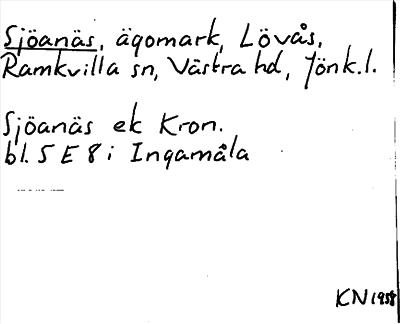 Sjöanäs, ägomark, Lövås,
Ramkvilla sn, Västra hd, Jönk.l.
Sjöanäs ek Kron.
bl. 5 E 8 i Ingamåla
KN 1958